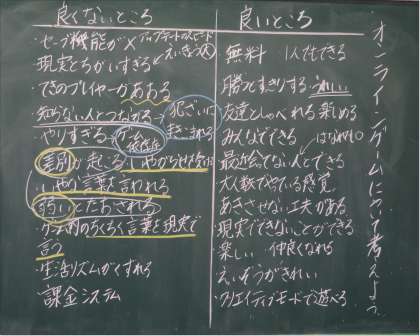 オンラインゲームについて考えよう
良くないところ
・セーブ機能が×
現実とちがいすぎる
てきのプレイヤーが
知らない人とつながる→犯ざいに
まきこまれる
・やりすぎる→ゲーム
依存症
差別が起こる
いやがらせを
いやな言葉が言われる
弱いとたおされる
・ゲーム内のちくちく言葉を現実で
言う
・生活リズムがくずれる
課金システム
良いところ
無料 1人でもできる
勝つとすっきりする うれしい
友達としゃべれる 楽しめる
みんなでできる
最近会えない人とできる
大人数でやっている感覚
あきさせない工夫がある
現実でできないことができる
楽しい 仲良くなれる
えいぞうがきれい
クリエイティブモードで遊べる